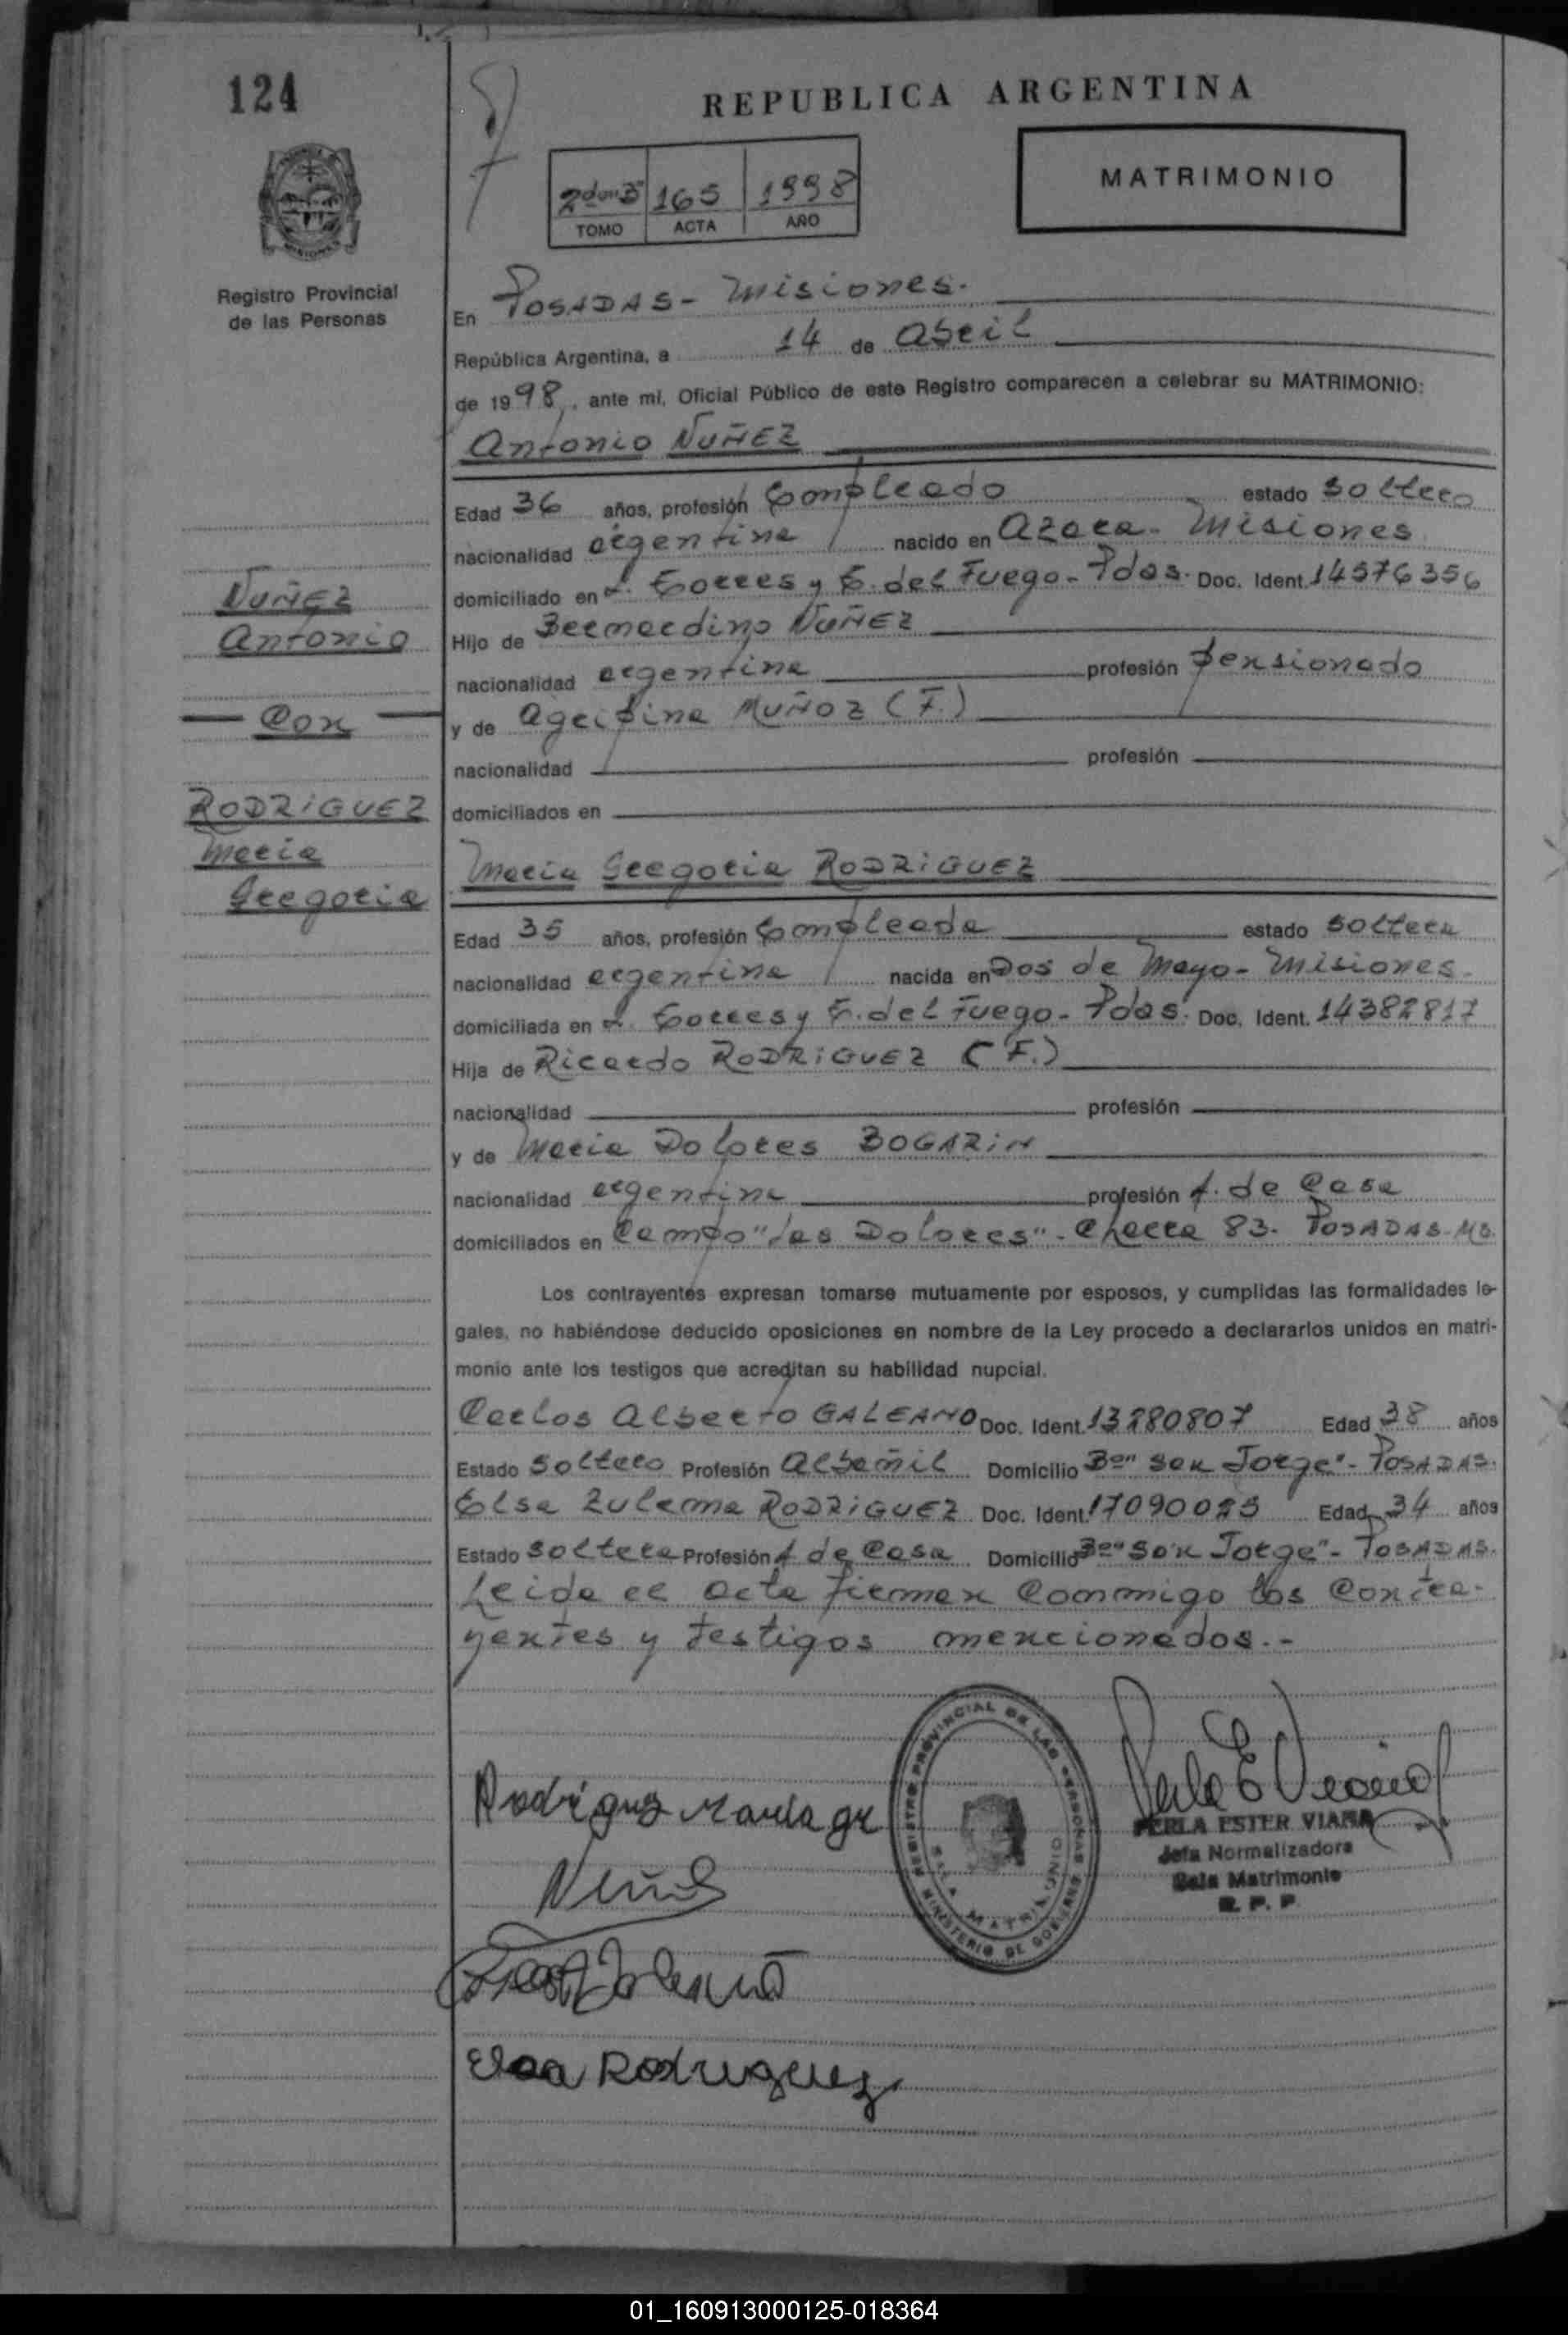 124
REPUBLICA ARGENTINA
MATRIMONIO
2do "B" 165 1998
TOMO ACTA AÑO
Registro Provincial
de las Personas
En POSADAS - Misiones.
República Argentina, a 14 de Abril
de 1998, ante mí, Oficial Público de este Registro comparecen a celebrar su MATRIMONIO:
Antonio NUÑEZ
Edad 36 años, profesión Empleado estado soltero
nacionalidad argentina nacido en Azara - Misiones
domiciliado en Torres y T. del Fuego - Pdas. Doc. Ident. 14576356
Hijo de Bernardino NUÑEZ
nacionalidad argentina profesión pensionado
y de Agripina MUÑOZ (F.)
nacionalidad profesión
domiciliados en
NUÑEZ
Antonio
Con
RODRIGUEZ
Maria
Gregoria
Maria Gregoria RODRIGUEZ
Edad 35 años, profesión Empleada estado soltera
nacionalidad argentina nacida en Dos de Mayo - Misiones.
domiciliada en Torres y T. del Fuego - Pdas. Doc. Ident. 14382817
Hija de Ricardo RODRIGUEZ (F.)
nacionalidad profesión
y de Maria Dolores BOGARIN
nacionalidad argentina profesión A. de Casa
domiciliados en Campo "Las Dolores" - Chacra 83. POSADAS-Ms.
Los contrayentes expresan tomarse mutuamente por esposos, y cumplidas las formalidades le-
gales, no habiéndose deducido oposiciones en nombre de la Ley procedo a declararlos unidos en matri-
monio ante los testigos que acreditan su habilidad nupcial.
Carlos Alberto GALEANO Doc. Ident. 13280807 Edad 38 años
Estado soltero Profesión Albañil Domicilio Bo "San Jorge" - POSADAS.
Elsa Zulema RODRIGUEZ Doc. Ident. 17090025 Edad 34 años
Estado soltera Profesión A de Casa Domicilio Bo "San Jorge" - POSADAS.
Leida el acta firman conmigo los contra-
yentes y testigos mencionados.-
REGISTRO PROVINCIAL DE LAS PERSONAS
SALA MATRIMONIO
MINISTERIO DE GOBIERNO
Rodriguez Maria gr
PERLA ESTER VIANA
Jefa Normalizadora
Sala Matrimonio
R. P. P.
Elsa Rodriguez
01_160913000125-018364